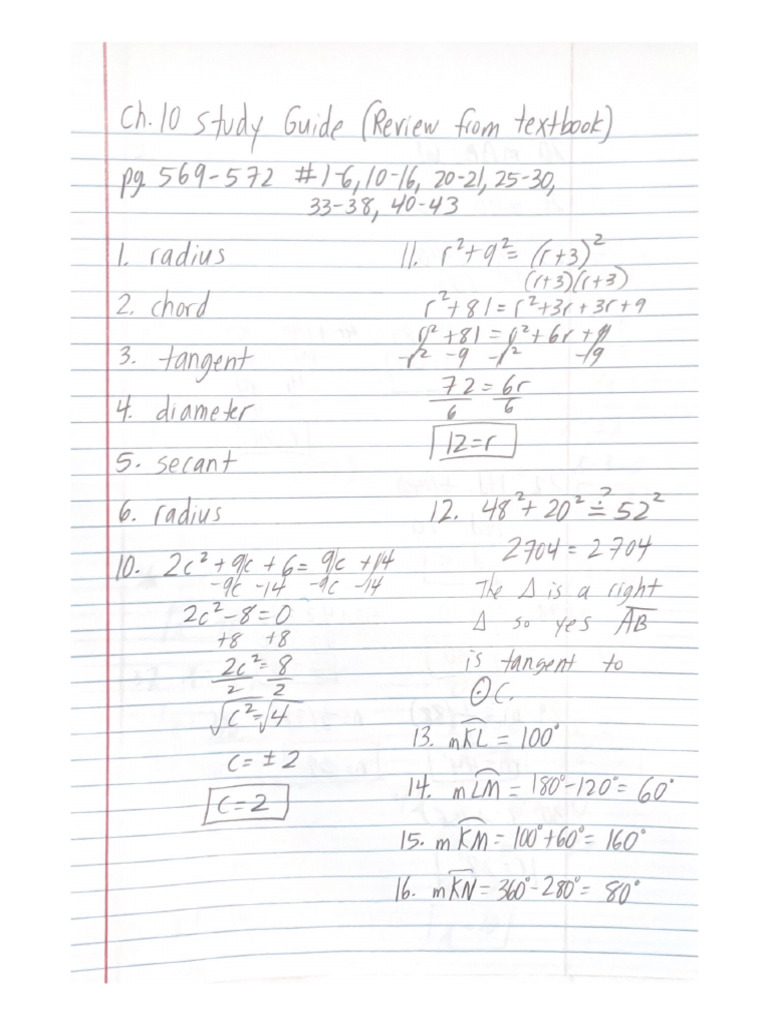 Ch.10 Study Guide (Review from textbook)
pg 569-572 #1-6, 10-16, 20-21, 25-30,
33-38, 40-43
1. radius
2. chord
3. tangent
4. diameter
5. secant
6. radius
10. 2c² + 9c + 6 = 9c + 14
-9c -14 -9c -14
2c² - 8 = 0
+8 +8
2c² = 8
2 2
√c² = √4
c = ± 2
c = 2
11. r² + 9² = (r+3)²
(r+3)(r+3)
r² + 81 = r² + 3r + 3r + 9
r² + 81 = r² + 6r + 9
-r² -9 -r² -9
72 = 6r
6 6
12 = r
12. 48² + 20² ≟ 52²
2704 = 2704
The Δ is a right
Δ so yes A̅B̅
is tangent to
⊙C.
13. mKL = 100°
14. mLM = 180° - 120° = 60°
15. mKM = 100° + 60° = 160°
16. mKN = 360° - 280° = 80°